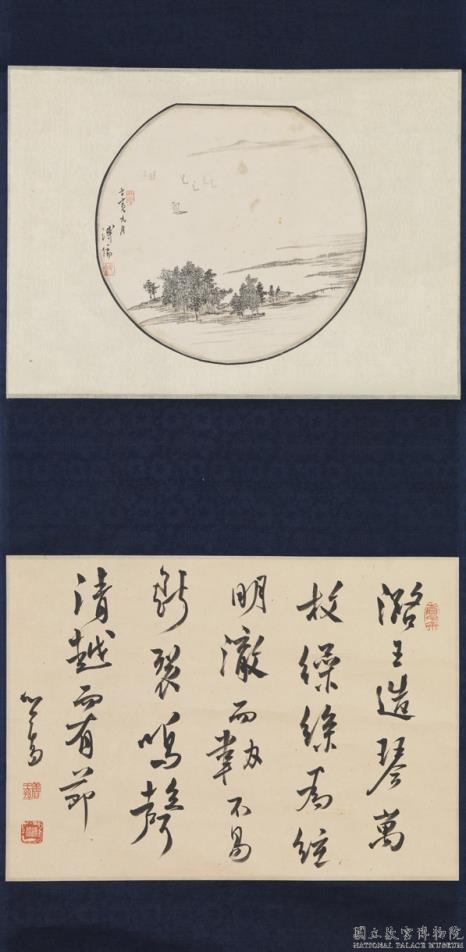 壬寅九月
溥儒
潞王造琴萬
枚繰絲為絃
明澈而韌不易
斷裂鳴聲
清越而有節
心畬
國立故宮博物院
NATIONAL PALACE MUSEUM